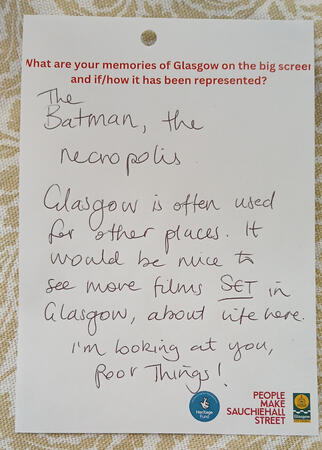 What are your memories of Glasgow on the big screen
and if/how it has been represented?
The
Batman, the
necropolis
Glasgow is often used
for other places. It
would be nice to
see more films SET in
Glasgow, about life here.
I'm looking at you,
Poor Things!
Heritage
Fund
PEOPLE
MAKE
SAUCHIEHALL
STREET
Glasgow